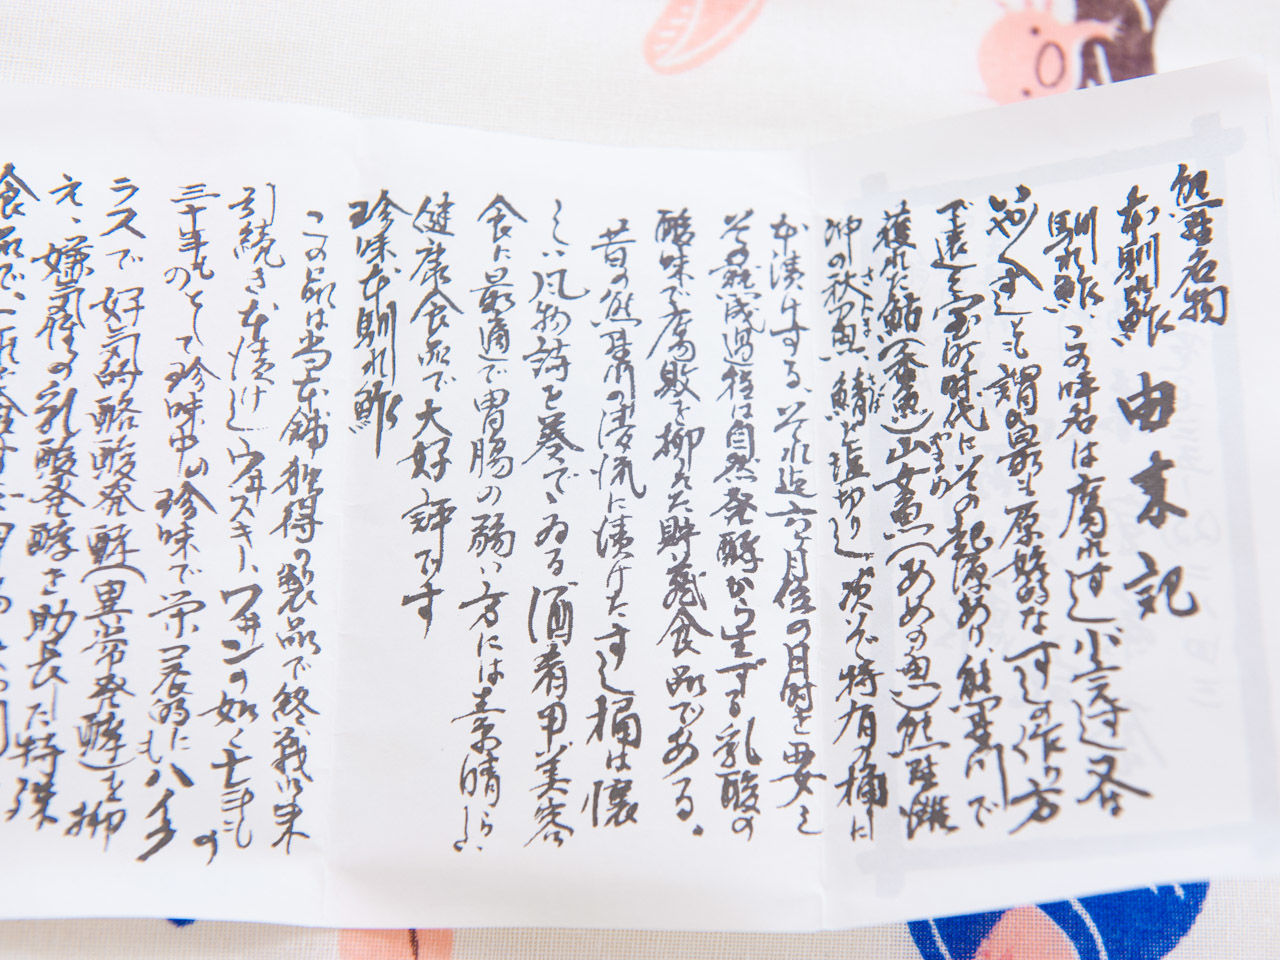 熊野名物
本馴れ鮓 由来記
馴れ鮓 この呼名は腐れずし 又は
とも謂の最も原始的なすしの作り方
で遠く室町時代にその起源あり、熊野川で
獲れた鮎(香魚)山女魚(あめの魚)熊野灘
やまめ
沖の秋刀魚、鯖を塩切りし、次いで特有の桶に
さんま さば
本漬けする、それ迄六ヶ月位の日時を要し
その熟成過程は自然発酵から生ずる乳酸の
酸味で腐敗を抑えた貯蔵食品である。
昔の熊野川の清流に漬けたすし桶は懐
しい風物詩を奏で、ゐる酒肴用、美容
食に最適で胃腸の弱い方には素晴らしい
健康食品で大好評です
珍味本馴れ鮓
この品は当本舗独得の製品で終戦以来
引続き本漬けしウヰスキー、ワヰンの如く十年もの
三十年ものとして珍味中の珍味で栄養的にも八千
ラスで好気的酪酸発酵(異常発酵)を抑
え、嫌気性の乳酸発酵を助長した特殊
食品で、